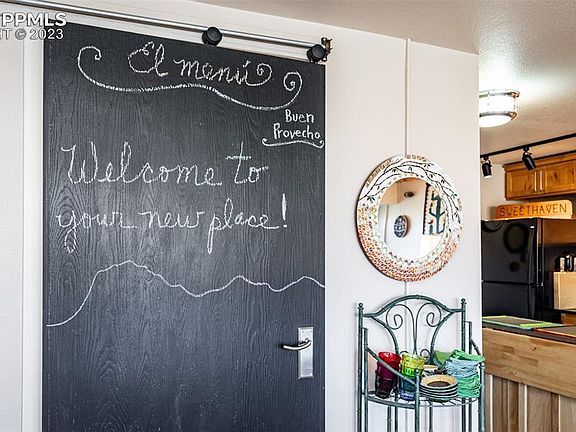 PPMLS
© 2023
El menú
Buen
Provecho
Welcome to
your new place!
SWEETHAVEN